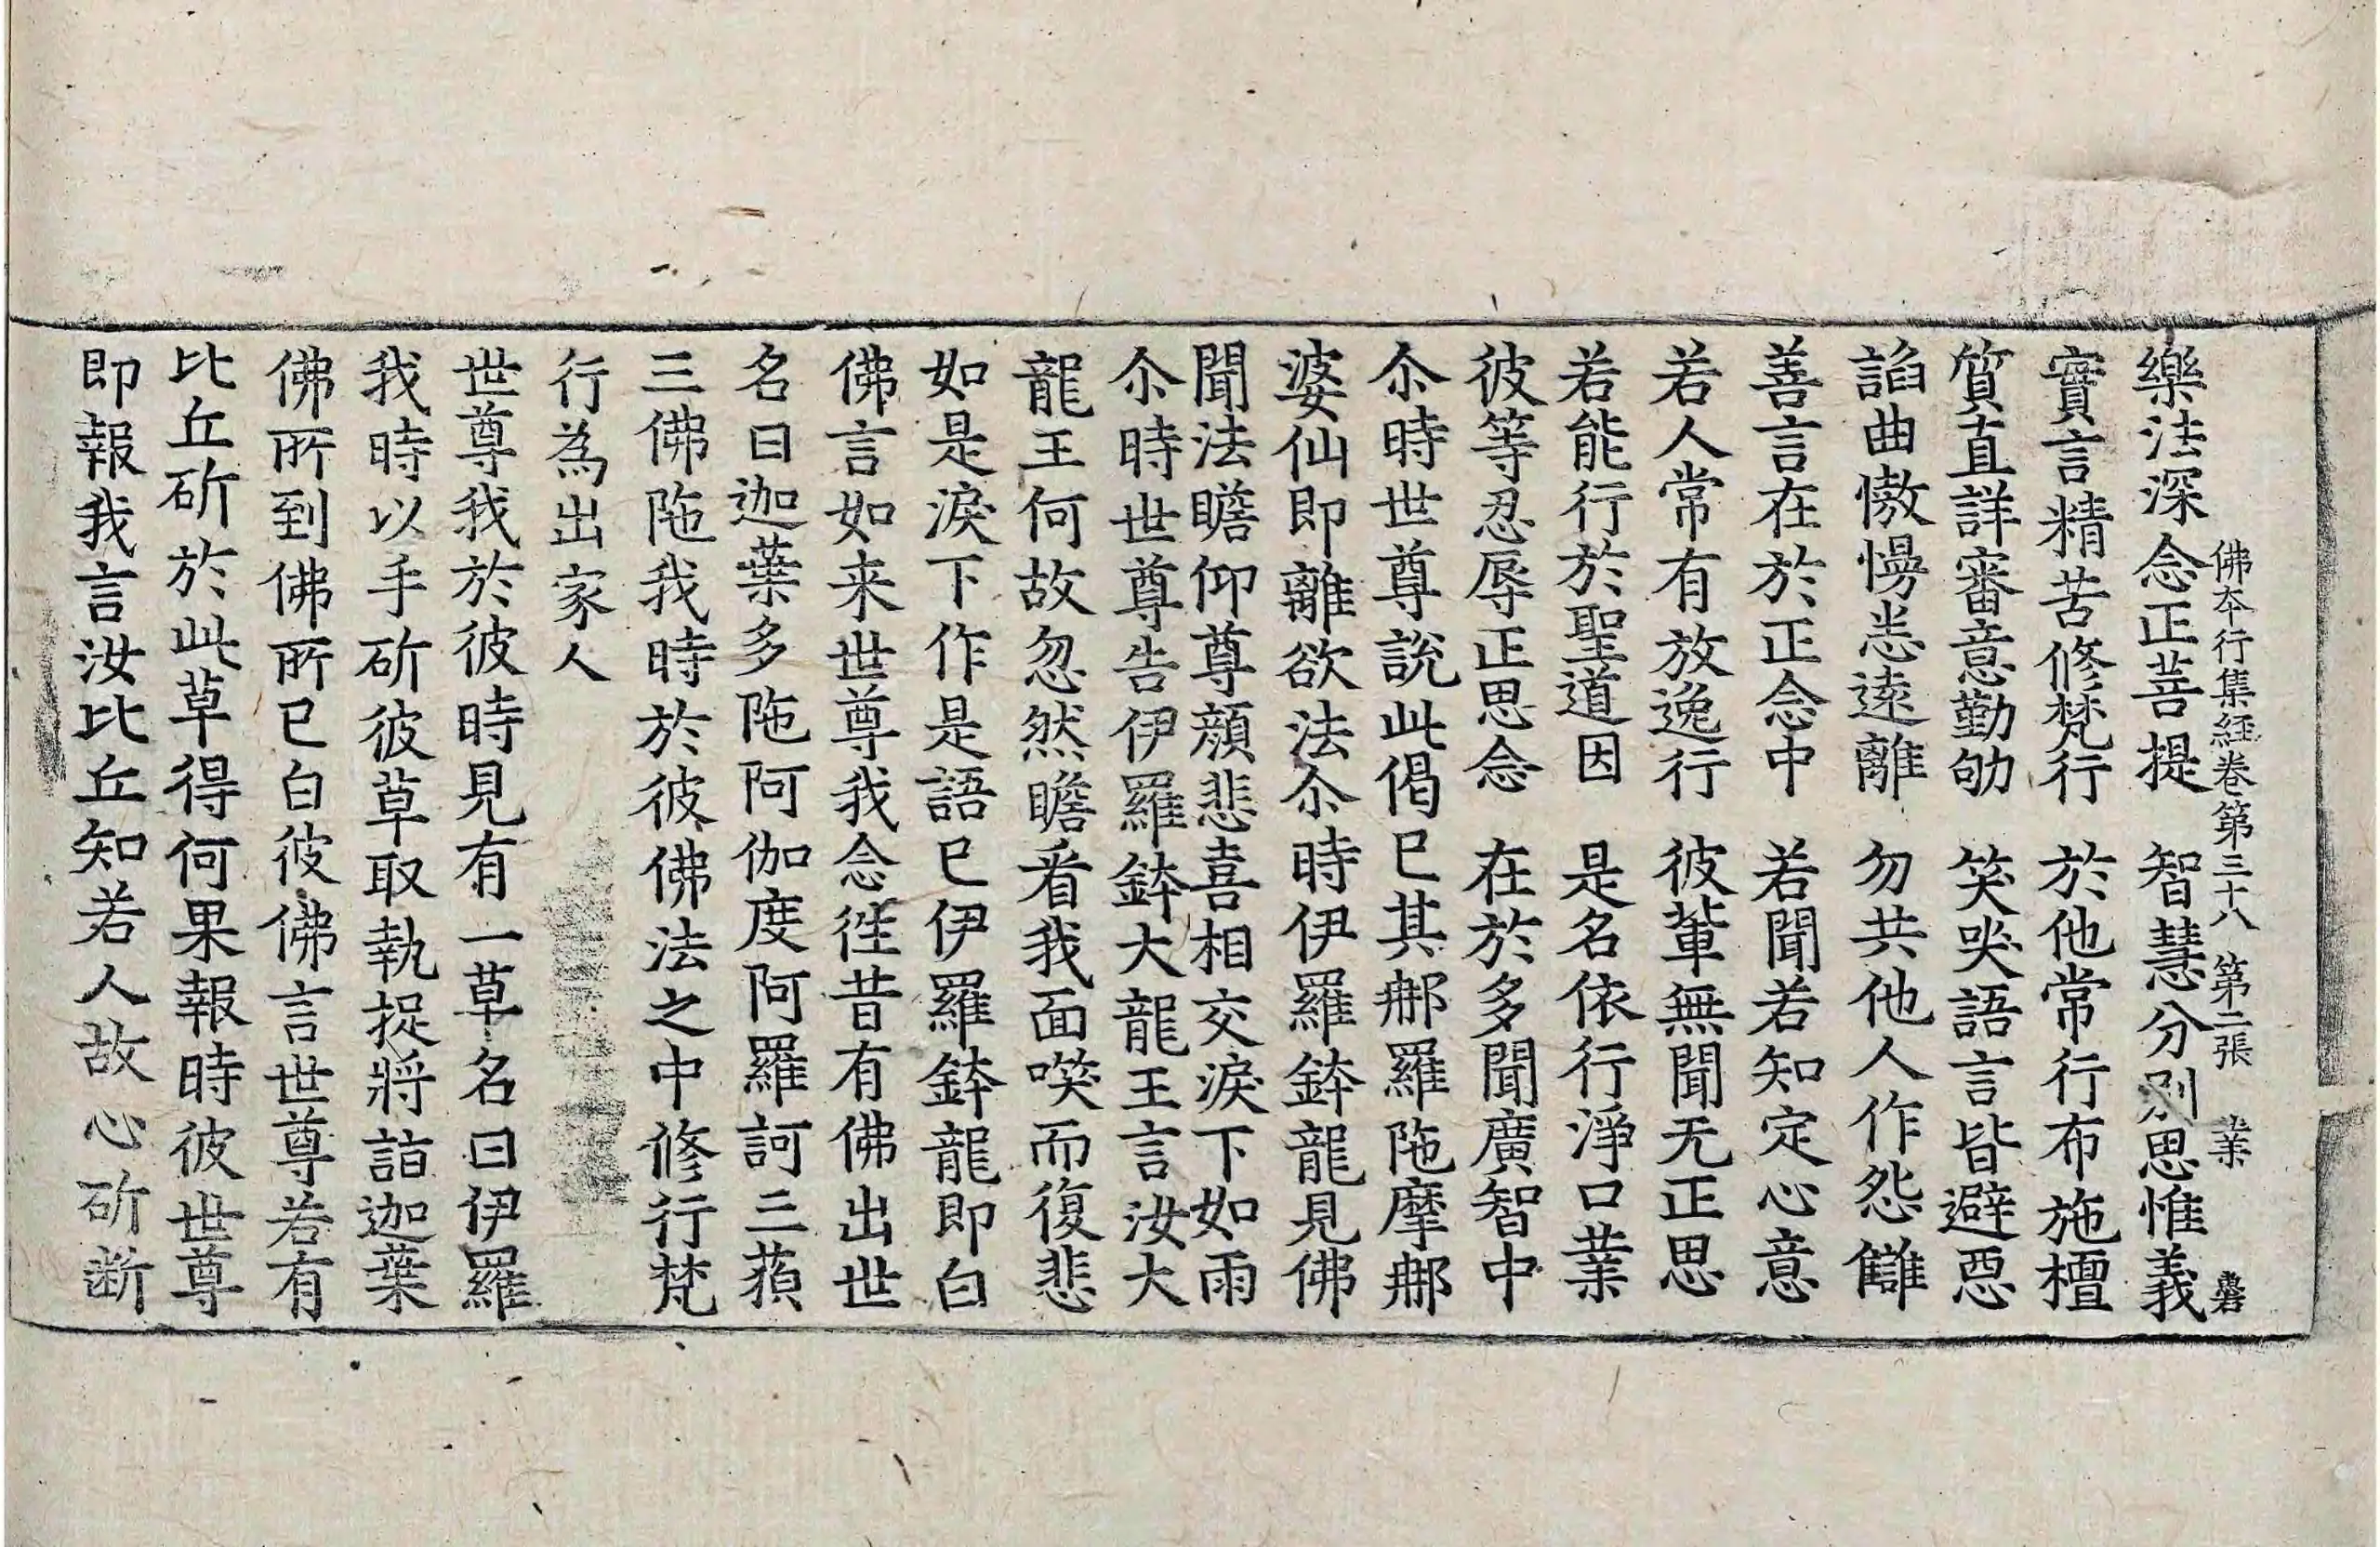 佛本行集經卷第三十八 第二張 業
樂法深念正菩提 智慧分別思惟義
實言精苦修梵行 於他常行布施檀
質直詳審意勤劬 笑哭語言皆避惡
諂曲慠慢悉遠離 勿共他人作怨讎
善言在於正念中 若聞若知定心意
若人常有放逸行 彼輩無聞无正思
若能行於聖道因 是名依行淨口業
彼等忍辱正思念 在於多聞廣智中
尒時世尊說此偈已其𨙻羅陁摩𨙻
婆仙即離欲法尒時伊羅鉢龍見佛
聞法瞻仰尊顏悲喜相交淚下如雨
尒時世尊告伊羅鉢大龍王言汝大
龍王何故忽然瞻看我面𠷣而復悲
如是淚下作是語已伊羅鉢龍即白
佛言如来世尊我念徃昔有佛出世
名曰迦葉多陁阿伽度阿羅訶三藐
三佛陁我時於彼佛法之中修行梵
行為出家人
世尊我於彼時見有一草名曰伊羅
我時以手斫彼草取執捉將詣迦葉
佛所到佛所已白彼佛言世尊若有
比丘斫於此草得何果報時彼世尊
即報我言汝比丘知若人故心斫断